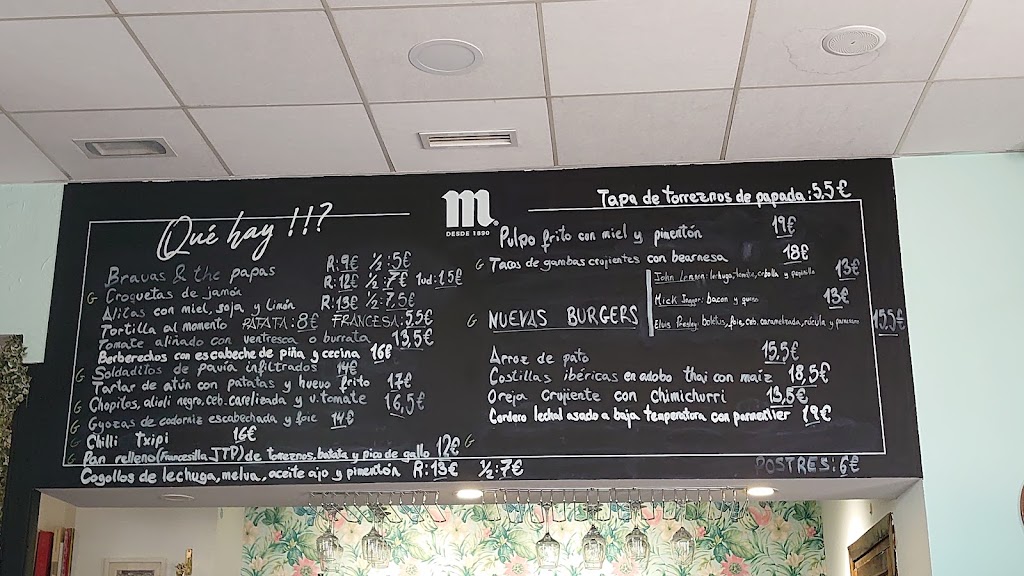 Qué hay !!!?
m
DESDE 1890
Tapa de torreznos de papada: 5,5€
Bravas & the papas R: 9€ ½: 5€
G Croquetas de jamón R: 12€ ½: 7€ 1ud: 1.5€
Alitas con miel, soja y limón R: 13€ ½: 7,5€
Tortilla al momento PATATA: 8€ FRANCESA: 5.5€
Tomate aliñado con ventresca o burrata 13,5€
Berberechos con escabeche de piña y cecina 16€
G Soldaditos de pavía infiltrados 14€
Tartar de atún con patatas y huevo frito 17€
G Chopitos, alioli negro, ceb. y v. tomate 16,5€
G Gyozas de codorniz escabechada y foie 14€
G Chilli Txipi 16€
G Pan relleno (Francesilla JTP) de torreznos, batata y pico de gallo 12€
Cogollos de lechuga, melva, aceite ajo y pimentón R: 13€ ½: 7€
Pulpo frito con miel y pimentón 19€
G Tacos de gambas crujientes con bearnesa 18€
G NUEVAS BURGERS
John Lennon: lechuga, tomate, cebolla y pepinillo 13€
Mick Jagger: bacon y queso 13€
Elvis Presley: boletus, foie, ceb. caramelizada, rúcula y parmesano 15.5€
Arroz de pato 15,5€
Costillas ibéricas en adobo thai con maíz 18,5€
Oreja crujiente con Chimichurri 13,5€
Cordero lechal asado a baja temperatura con parmentier 19€
G
POSTRES: 6€